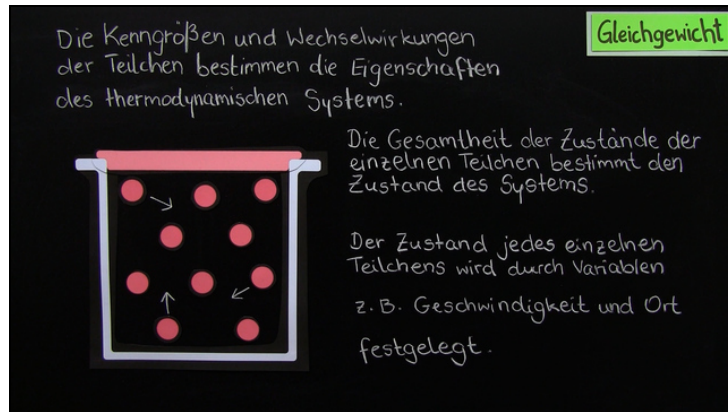 Die Kenngrößen und Wechselwirkungen
der Teilchen bestimmen die Eigenschaften
des thermodynamischen Systems.
Gleichgewicht
Die Gesamtheit der Zustände der
einzelnen Teilchen bestimmt den
Zustand des Systems.
Der Zustand jedes einzelnen
Teilchens wird durch Variablen
z. B. Geschwindigkeit und Ort
festgelegt.